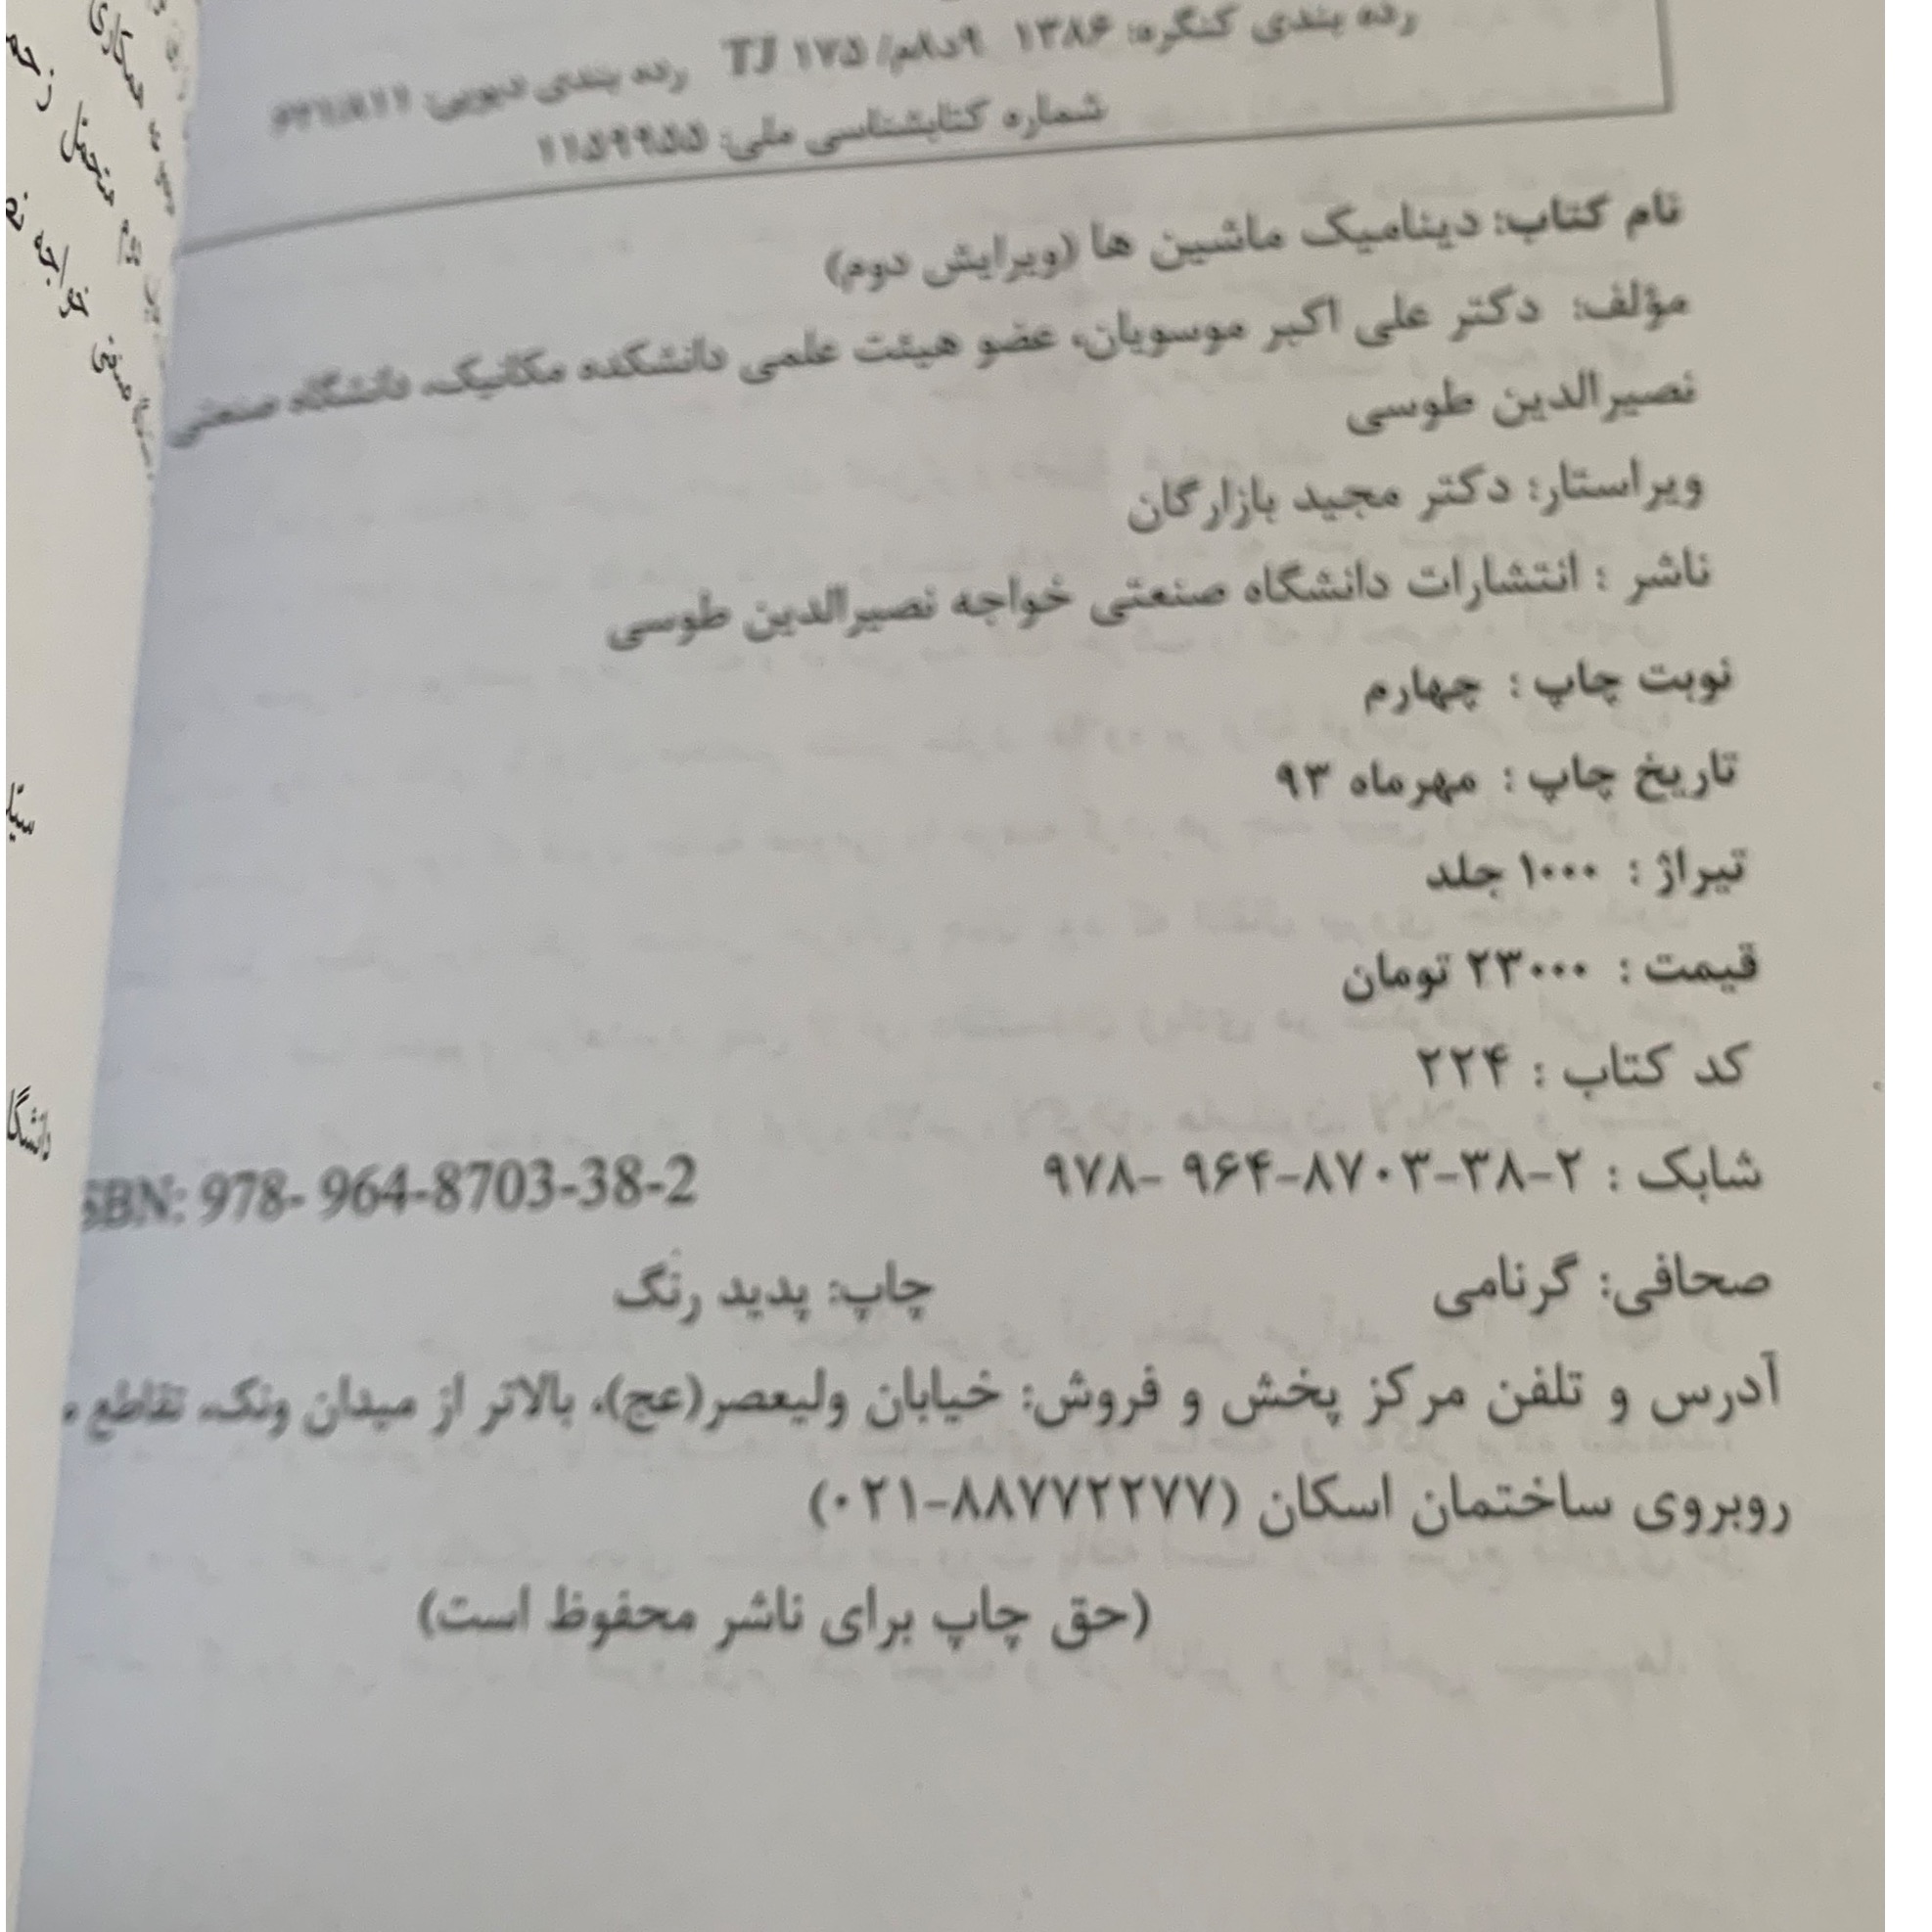 رده بندی کنگره: ۱۳۸۶ ۹د۸م/ TJ ۱۷۵ رده بندی دیویی: ۶۲۱/۸۱۱
شماره کتابشناسی ملی: ۱۱۵۹۹۵۵
نام کتاب: دینامیک ماشین ها (ویرایش دوم)
مؤلف: دکتر علی اکبر موسویان، عضو هیئت علمی دانشکده مکانیک، دانشگاه صنعتی
نصیرالدین طوسی
ویراستار: دکتر مجید بازارگان
ناشر : انتشارات دانشگاه صنعتی خواجه نصیرالدین طوسی
نوبت چاپ : چهارم
تاریخ چاپ : مهرماه ۹۳
تیراژ : ۱۰۰۰ جلد
قیمت : ۲۳۰۰۰ تومان
کد کتاب : ۲۲۴
شابک : ۲-۳۸-۸۷۰۳-۹۶۴ -۹۷۸ SBN: 978- 964-8703-38-2
صحافی: گرنامی چاپ: پدید رنگ
آدرس و تلفن مرکز پخش و فروش: خیابان ولیعصر(عج)، بالاتر از میدان ونک، تقاطع
روبروی ساختمان اسکان (۸۸۷۷۲۲۷۷-۰۲۱)
(حق چاپ برای ناشر محفوظ است)